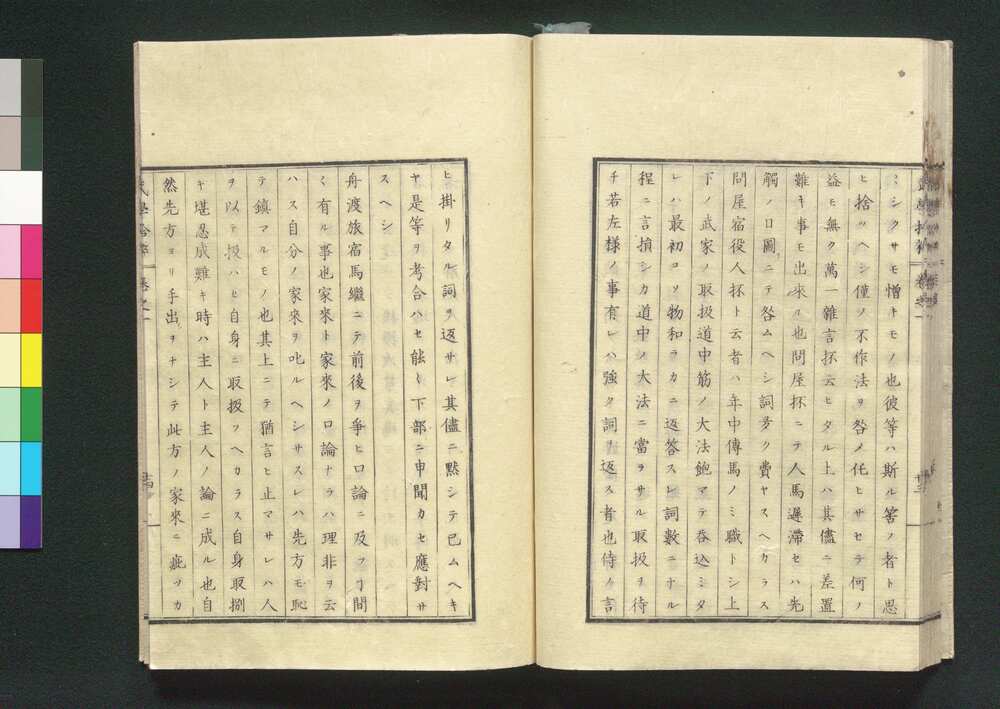 ミシクサモ憎キモノ也彼等ハ斯ル筈ノ者ト思
ヒ捨ツヘシ僅ノ不作法ヲ咎メ仕ヒサセラ何ノ
益モ無ク萬一雜言抔云ヒタル上ハ其儘ニ差置
難キ事モ出來ル也問屋抔ニテ人馬遲滯セハ先
觸ノ日圖ニテ咎ムヘシ詞多ク費ヤスヘカラス
問屋宿役人抔ト云者ハ年中傳馬ノミ職トシ上
下ノ武家ノ取扱道中筋ノ大法飽マテ呑込ミタ
レハ最初コソ物和ラカニ返答スレ詞數ニナル
程ニ言損シカ道中ノ大法ニ當ヲサル取扱ヲ待
チ若左樣ノ事有レハ強ク詞ヲ返ス者也侍ノ言
ヒ掛リタル詞ヲ返サレ其儘ニ黙シテ已ムヘキ
ヤ是等ヲ考合ハセ能ク下部ニ申聞カセ應對サ
スヘシ
舟渡旅宿馬繼ニテ前後ヲ爭ヒ口論ニ及フヿ間
く有ル事也家來ト家來ノ口論ナラハ理非ヲ云
ハス自分ノ家來ヲ叱ルヘシサスレハ先方モ恥
テ鎮マルモノ也其上ニテ猶言ヒ止マサレハ人
ヲ以テ扱ハヒ自身ニ取扱フヘカラス自身取捌
キ堪忍成難キ時ハ主人ト主人ノ論ニ成ル也自
然先方ヨリ手出ヲナシテ此方ノ家來ニ疵ツカ